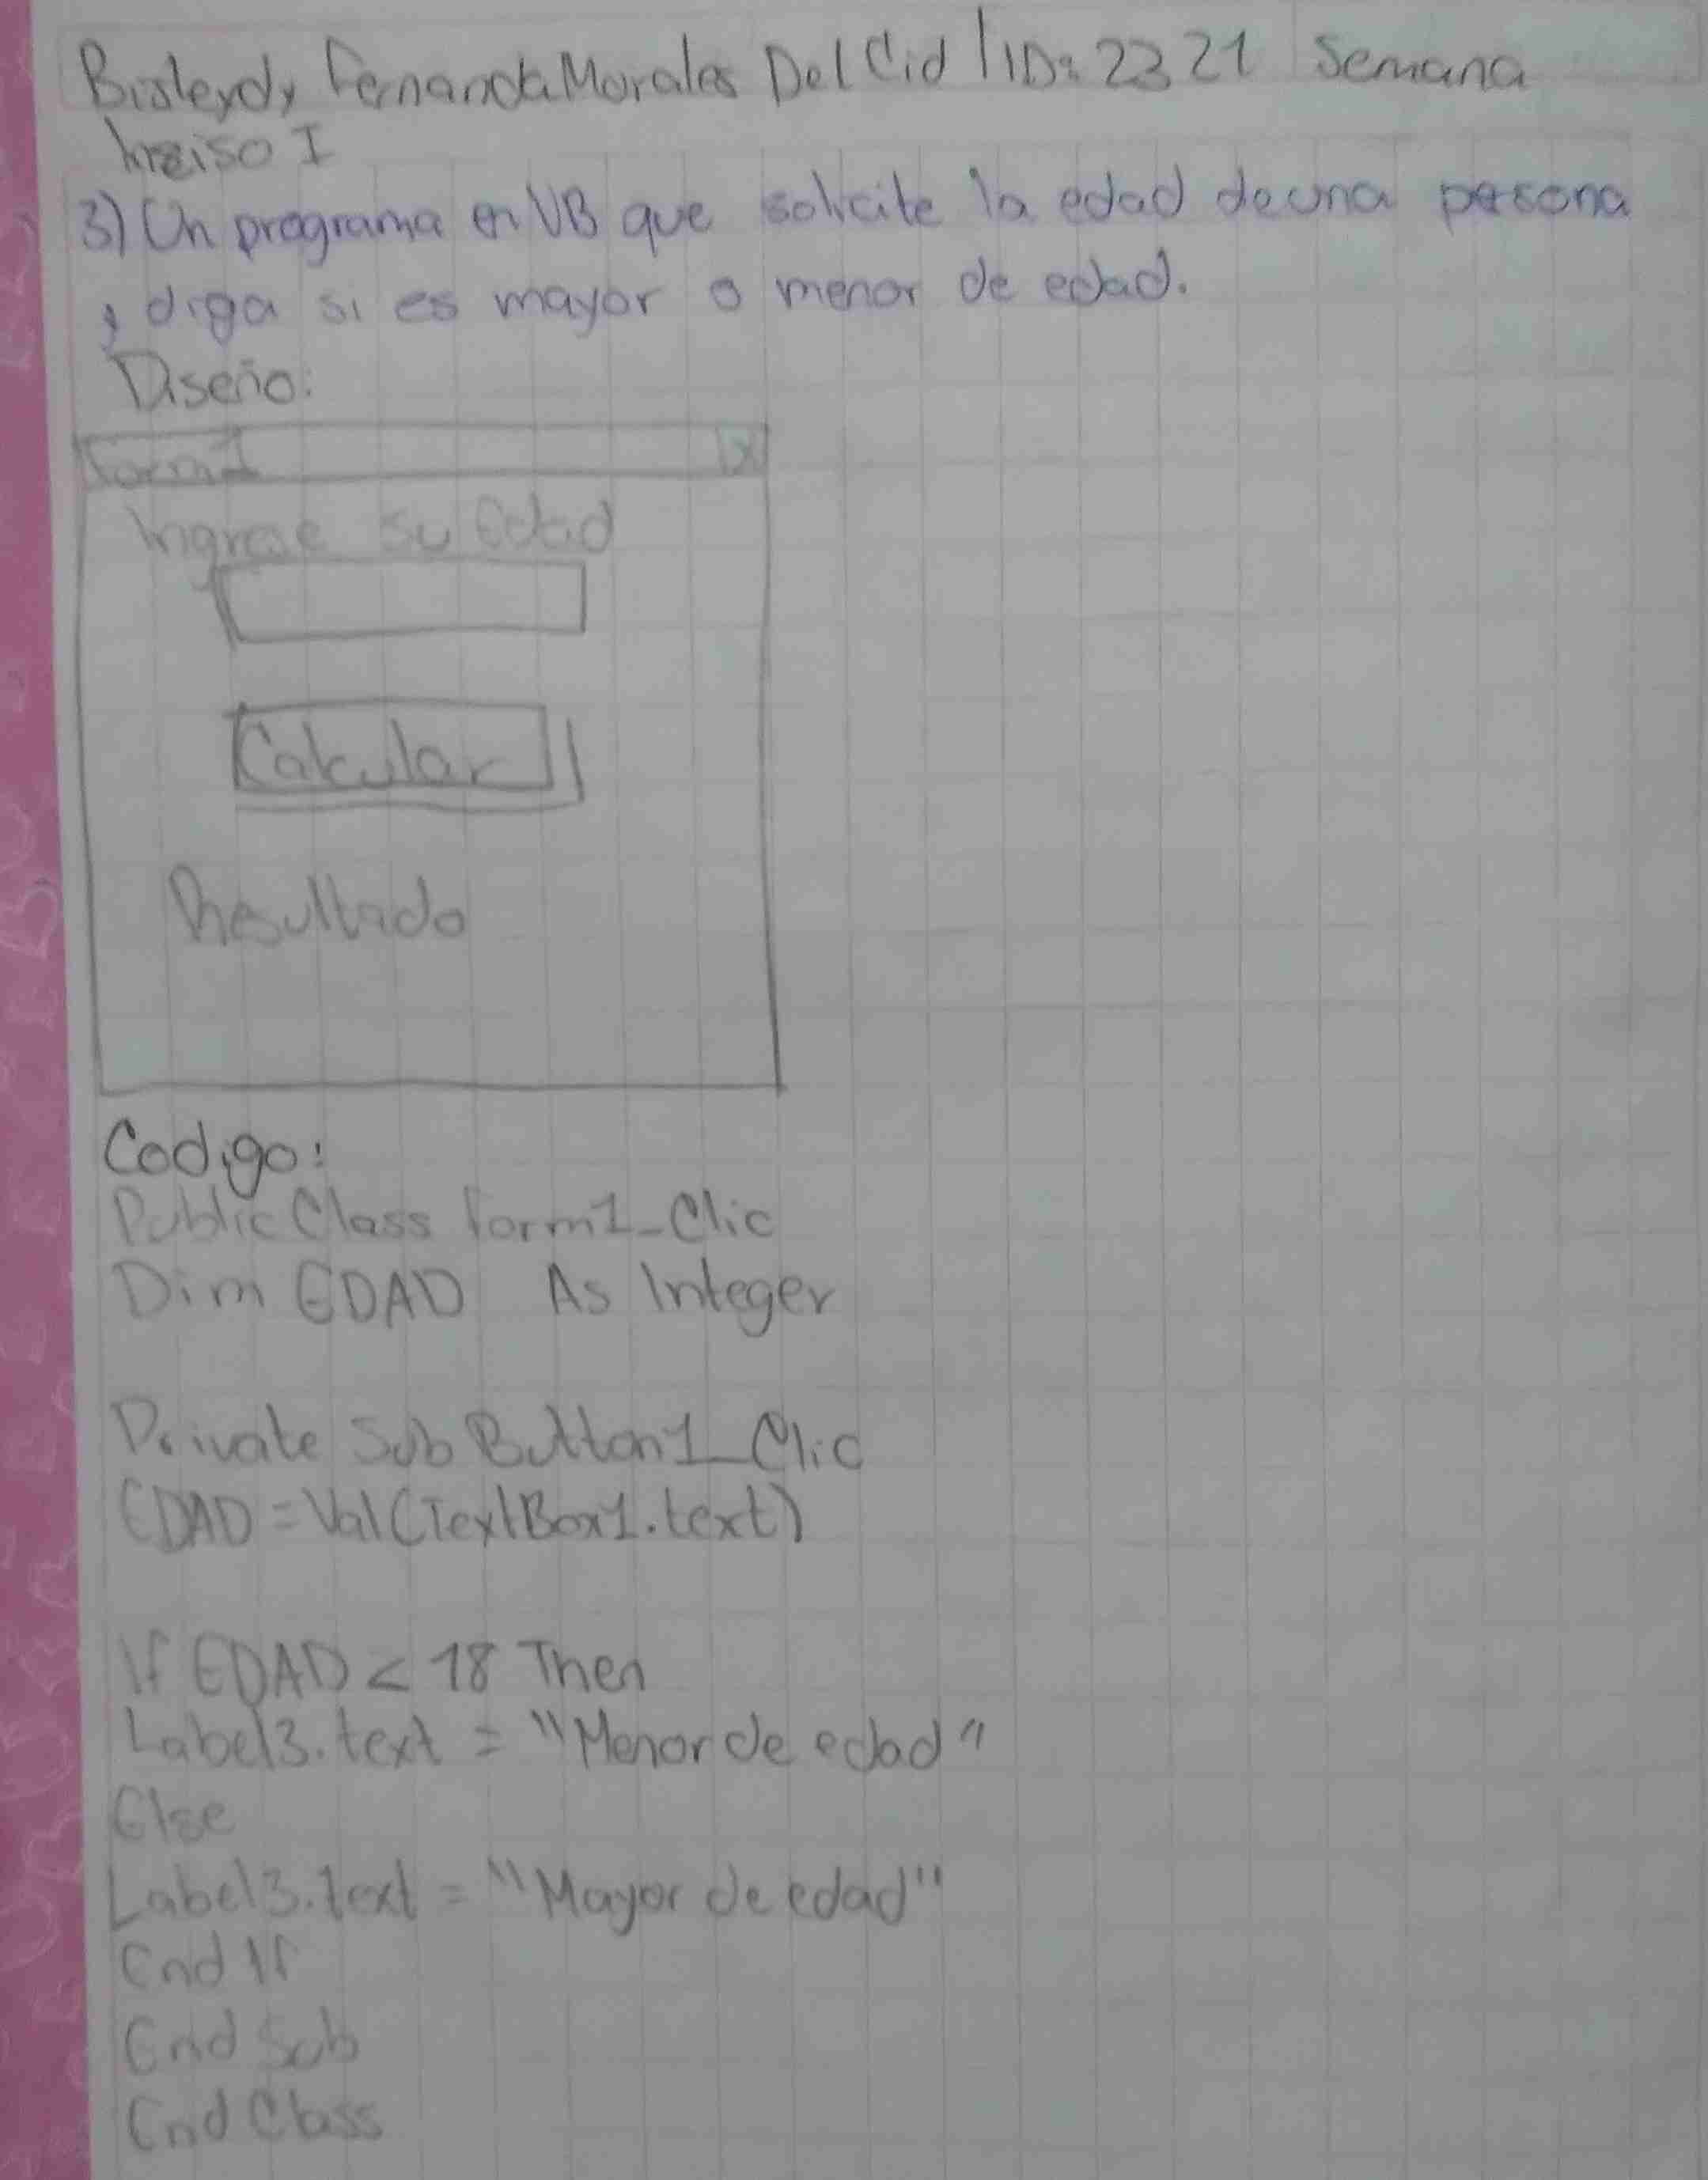 Bisleydy Fernanda Morales Del Cid | ID: 2321 Semana
Inciso I
3) Un programa en VB que solicite la edad de una persona
y diga si es mayor o menor de edad.
Diseño:
Form1 X
Ingrese su Edad
Calcular
Resultado
Codigo:
Public Class form1_Clic
Dim EDAD As Integer
Private Sub Button1_Clic
EDAD = Val(TextBox1.text)
If EDAD < 18 Then
Label3.text = "Menor de edad"
Else
Label3.text = "Mayor de edad"
End If
End Sub
End Class